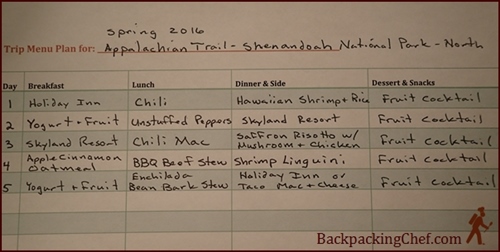 Spring 2016
Trip Menu Plan for: Appalachian Trail - Shenandoah National Park - North
Day Breakfast Lunch Dinner & Side Dessert & Snacks
1 Holiday Inn Chili Hawaiian Shrimp + Rice Fruit Cocktail
2 Yogurt + Fruit Unstuffed Peppers Skyland Resort Fruit Cocktail
3 Skyland Resort Chili Mac Saffron Risotto w/ Mushroom + Chicken Fruit Cocktail
4 Apple Cinnamon Oatmeal BBQ Beef Stew Shrimp Linguini Fruit Cocktail
5 Yogurt + Fruit Enchilada Bean Bark Stew Holiday Inn or Taco Mac + Cheese Fruit Cocktail
BackpackingChef.com